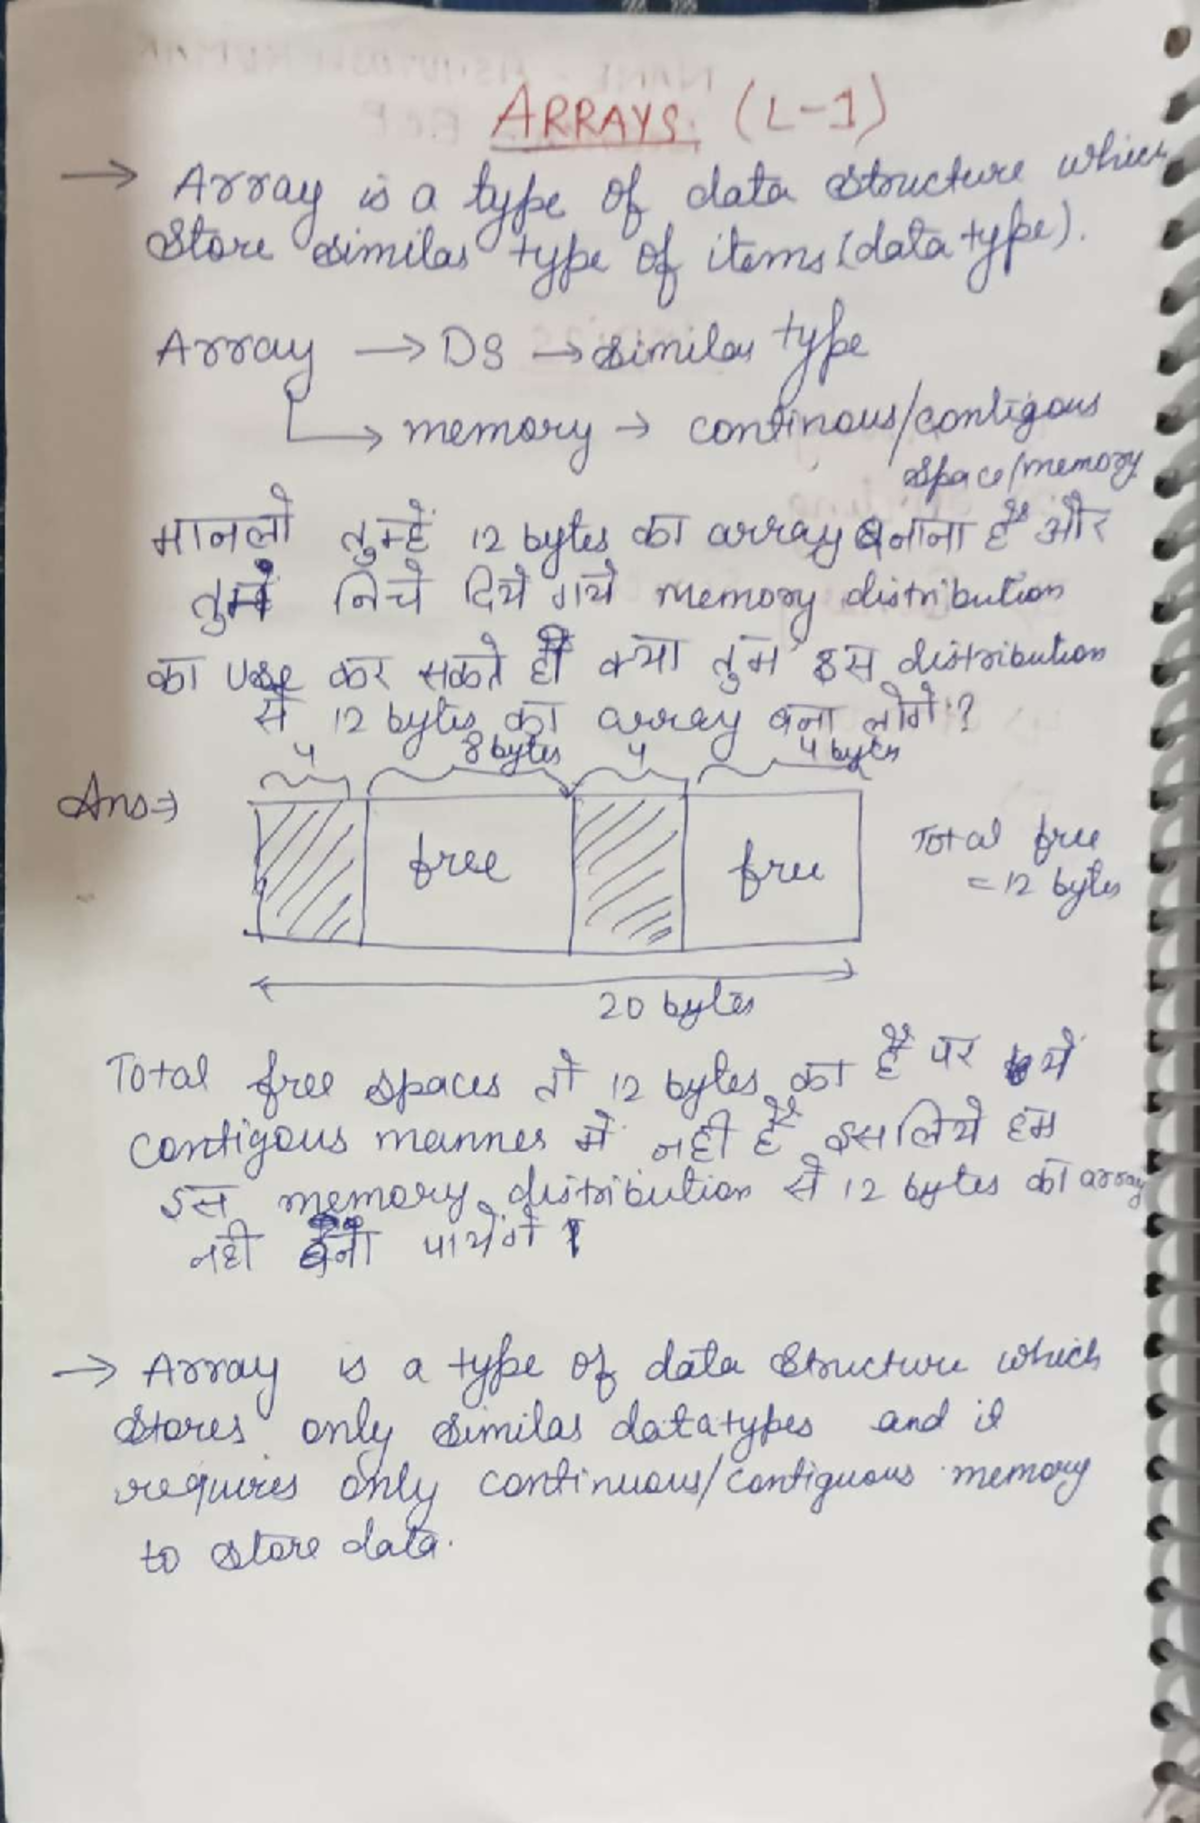 ARRAYS (L-1)
→ Array is a type of data structure which
store similar type of items (data type).
Array → DS → similar type
→ memory → continous/contigous
space/memory
मानलो तुम्हें 12 bytes का array बनाना है और
तुम निचे दिये गये memory distribution
का use कर सकते हो क्या तुम इस distribution
से 12 bytes का array बना लोगे?
4 8 bytes 4 4 bytes
Ans→
free free
Total free
= 12 bytes
20 bytes
Total free spaces तो 12 bytes का है पर ये
contigous manner में नही है इसलिये हम
इस memory distribution से 12 bytes का array
नही बना पायेगे।
→ Array is a type of data structure which
stores only similar datatypes and it
requires only continuous/contiguous memory
to store data.